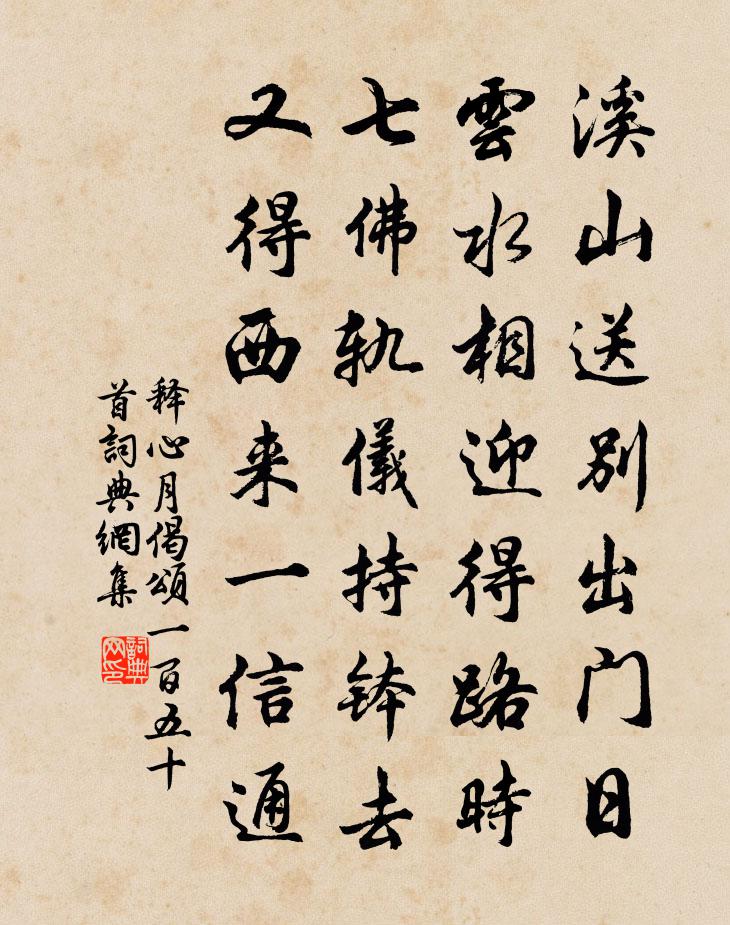 溪山送别出门日
雲水相迎得路時
七佛軌儀持鉢去
又得西来一信通
释心月偈頌一百五十
首詞典網集
詞典
网印